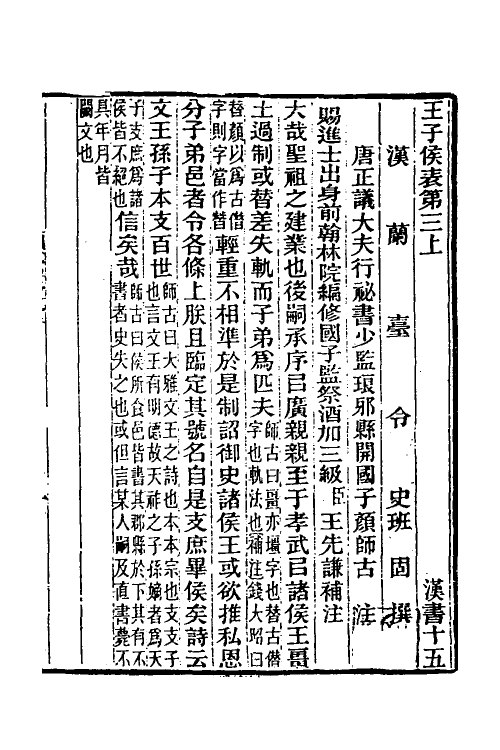 王子侯表第三上 漢書十五
漢蘭臺令史班固撰
唐正議大夫行祕書少監琅邪縣開國子顏師古注
賜進士出身前翰林院編修國子監祭酒加三級臣王先謙補注
大哉聖祖之建業也後嗣承序㠯廣親親至于孝武㠯諸侯王畺
土過制或替差失軌而子弟爲匹夫師古曰畺亦壃字也替古僭字也軌法也補注錢大昭曰
替顏以爲古僭字則字當作替輕重不相準於是制詔御史諸侯王或欲推私恩
分子弟邑者令各條上朕且臨定其號名自是支庶畢侯矣詩云
文王孫子本支百世師古曰大雅文王之詩也本本宗也支支子也言文王有明德故天祚之子孫嫡者爲天
子支庶爲諸侯皆不絕也信矣哉師古曰侯所食邑皆書其郡縣於下其有不書者史失之也或但言某人嗣及直書薨不
具年月皆闕文也